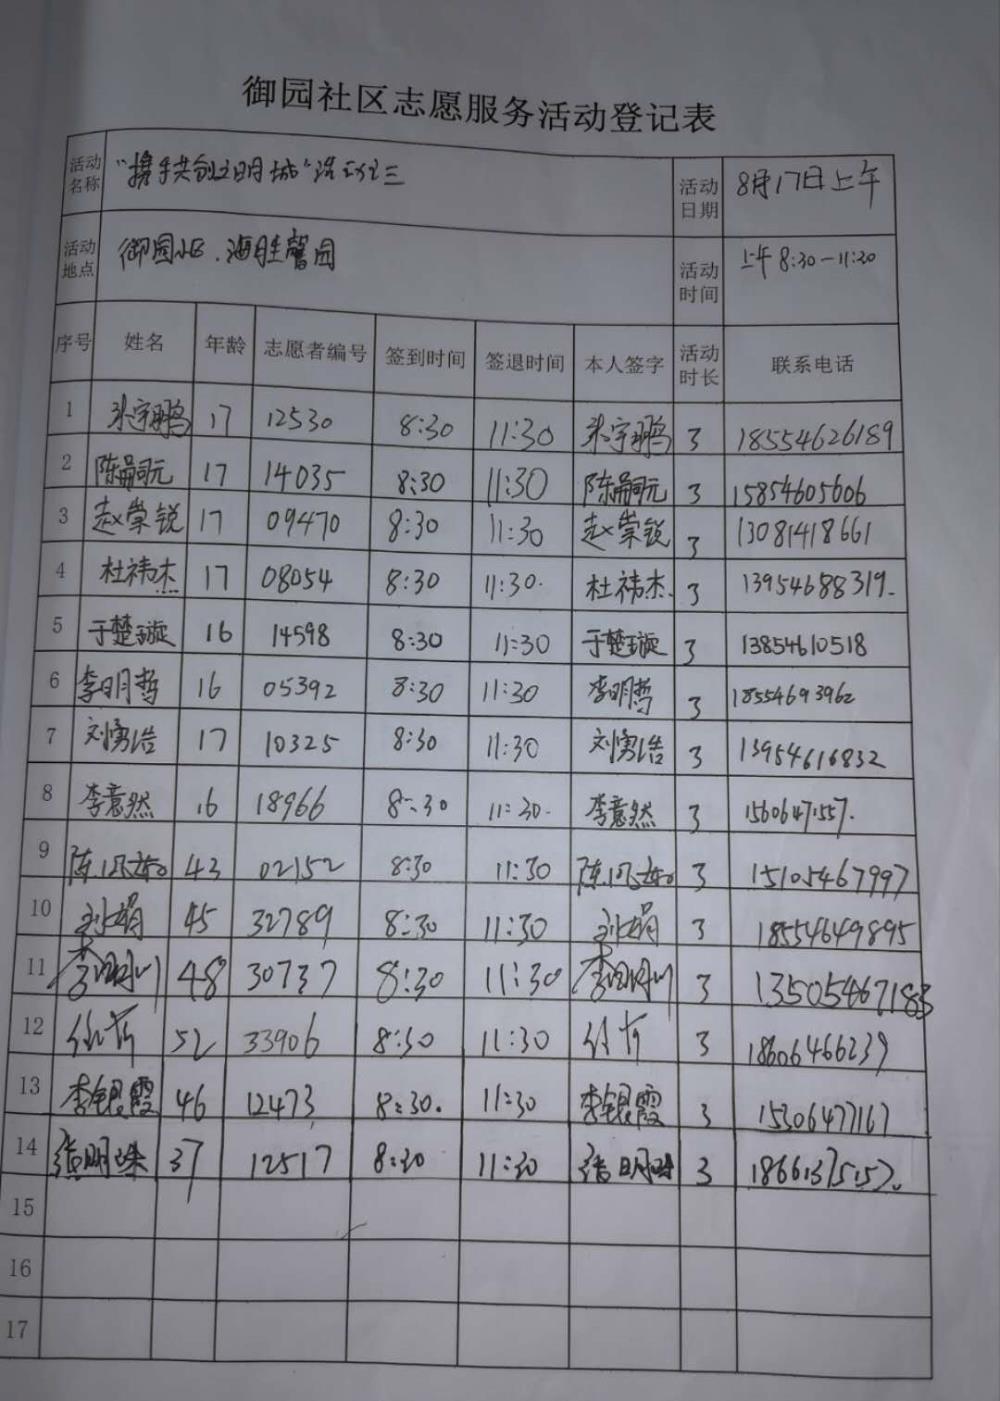 御园社区志愿服务活动登记表
活动名称 "携手共创文明城"活动之三 活动日期 8月17日上午
活动地点 御园小区、海胜馨园 活动时间 上午 8:30-11:30
序号 姓名 年龄 志愿者编号 签到时间 签退时间 本人签字 活动时长 联系电话
1 张宇鹏 17 12530 8:30 11:30 张宇鹏 3 18554626189
2 陈嗣元 17 14035 8:30 11:30 陈嗣元 3 15854605606
3 赵崇锐 17 09470 8:30 11:30 赵崇锐 3 13081418661
4 杜祎杰 17 08054 8:30 11:30. 杜祎杰. 3 13954688319.
5 于楚璇 16 14598 8:30 11:30 于楚璇 3 13854610518
6 李明哲 16 05392 8:30 11:30 李明哲 3 18554693962
7 刘勇浩 17 10325 8:30 11:30 刘勇浩 3 13954616832
8 李意然 16 18966 8:30 11:30. 李意然 3
9 43 02152 8:30 11:30 3 15105467997
10 刘娟 45 32789 8:30 11:30 刘娟 3 18554649895
11 48 30737 8:30 11:30 3 13505467183
12 52 33906 8:30 11:30 3 18606466239
13 李银霞 46 12473 8:30. 11:30 李银霞 3 15306477167
14 37 12517 8:30 11:30 3
15
16
17